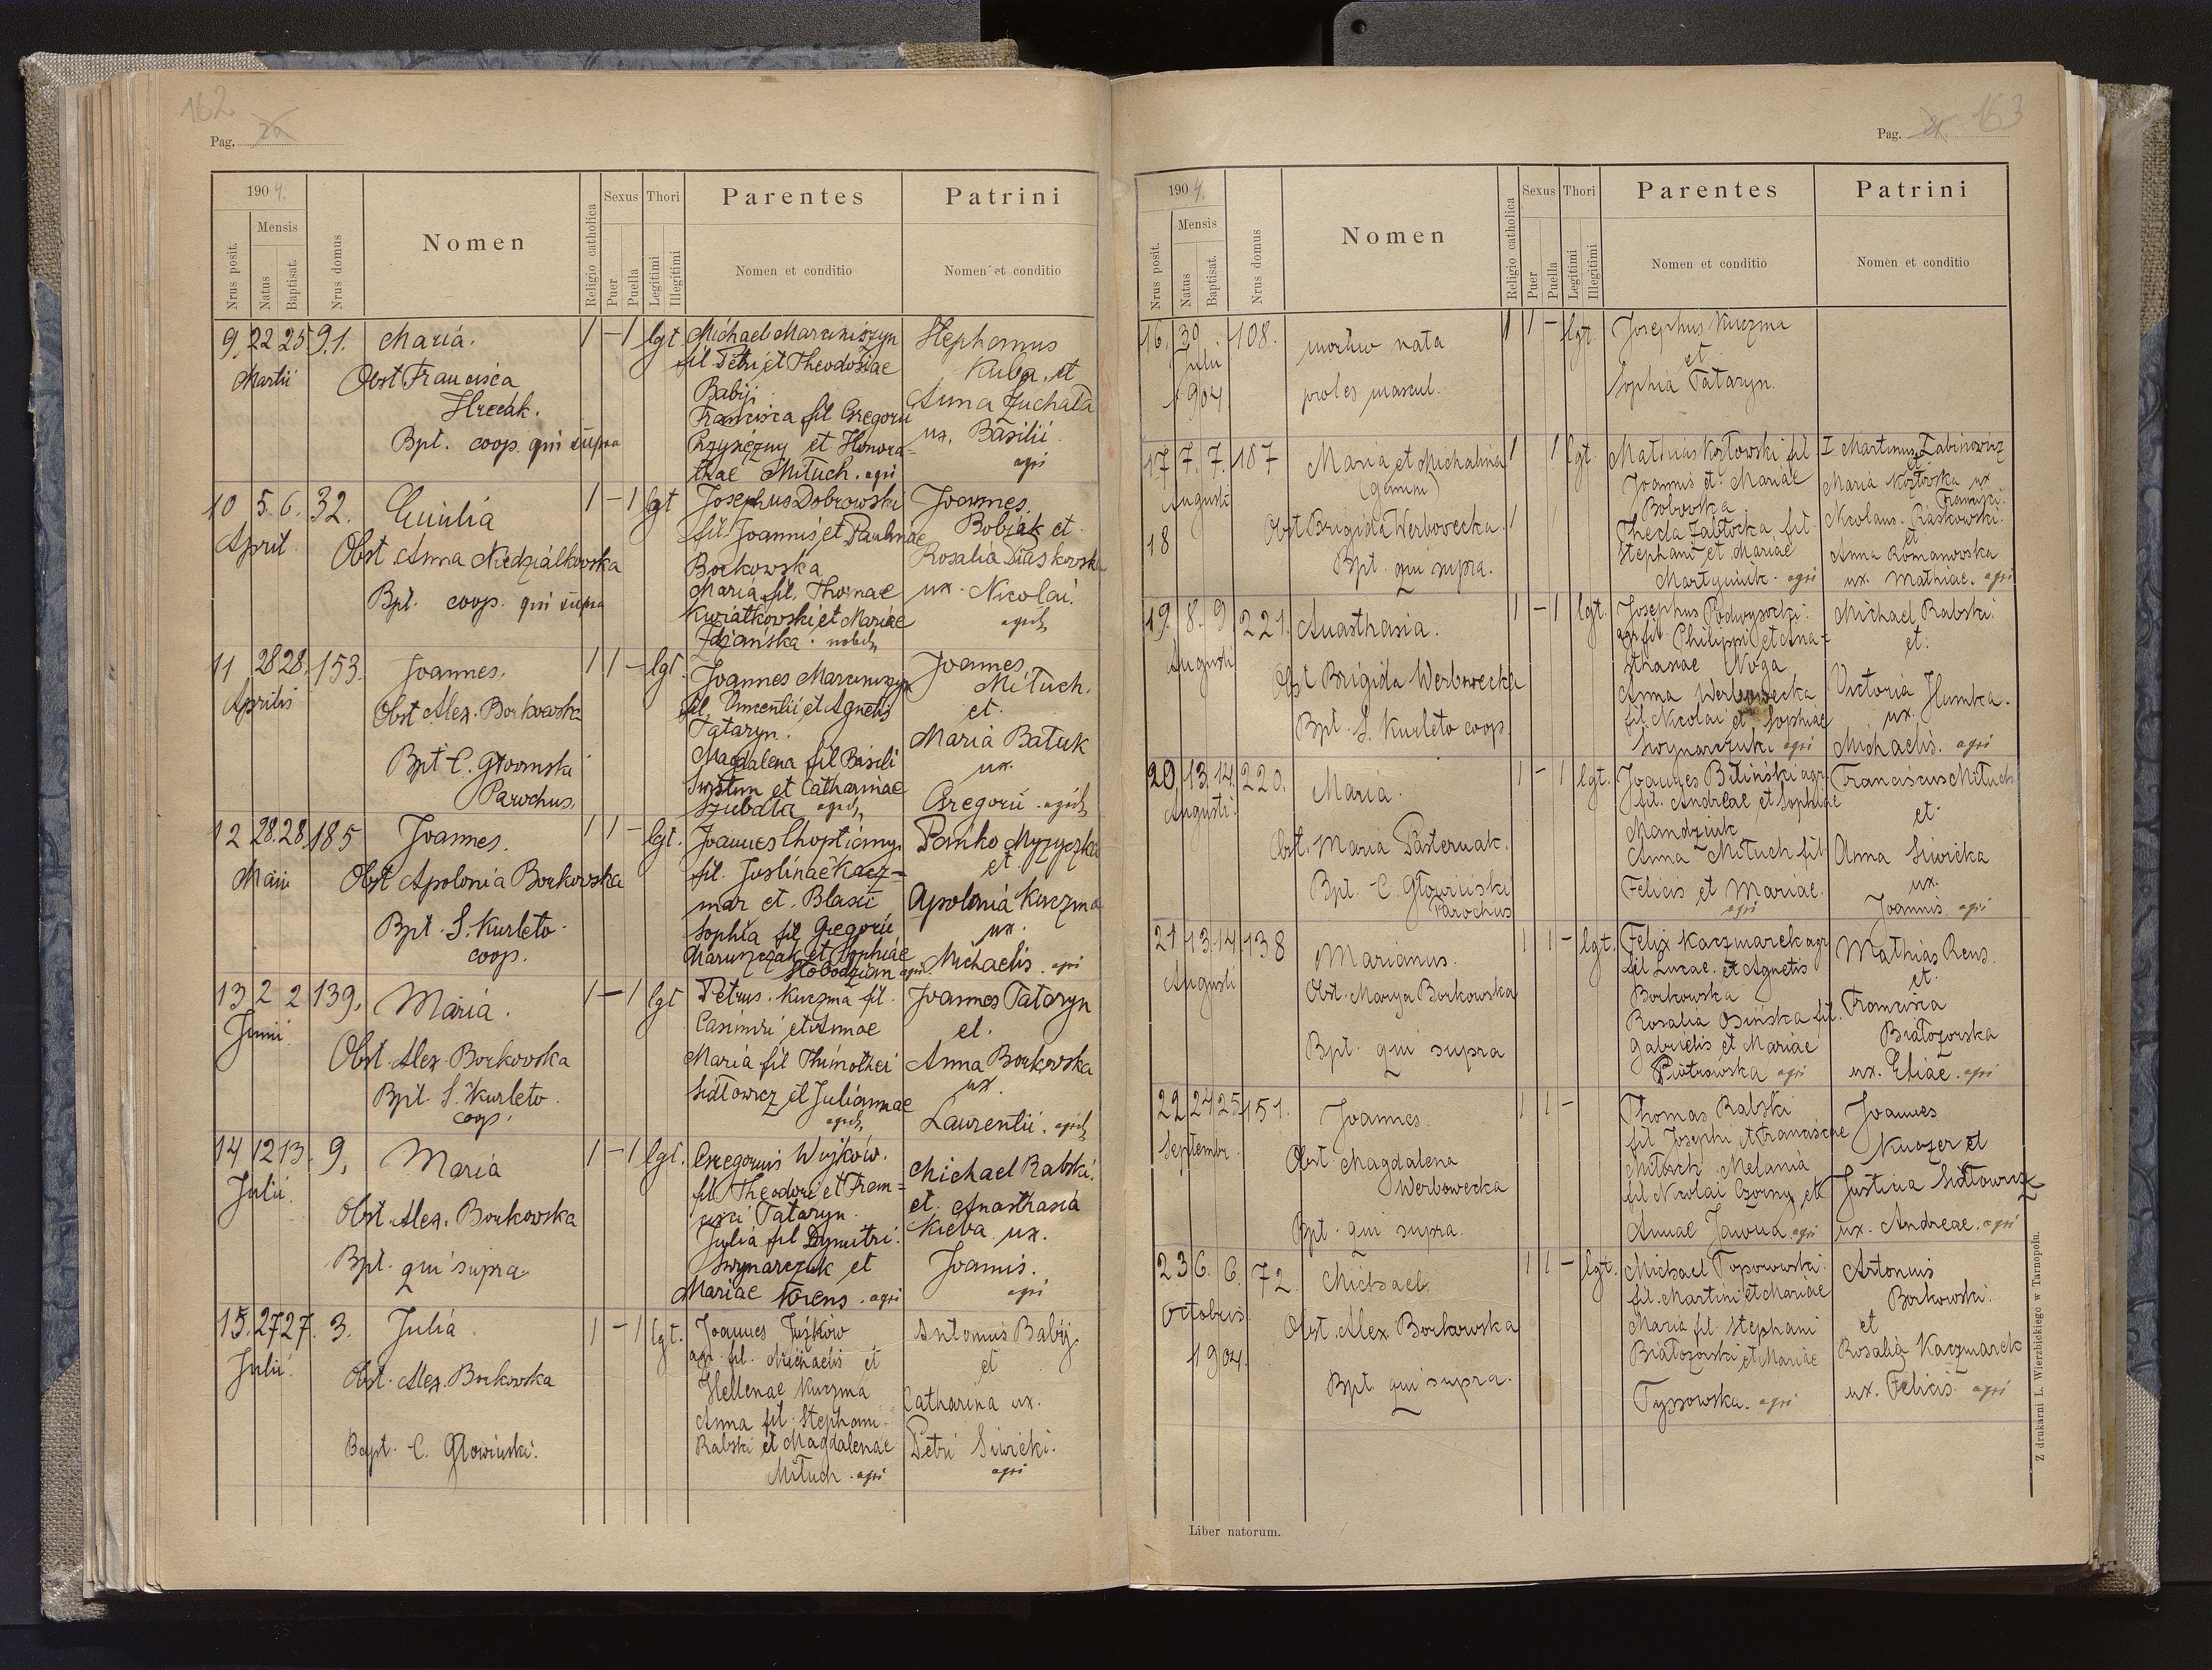 162
Pag. 26
1904.
Nrus posit.
Mensis
Natus
Baptisat.
Nrus domus
Nomen
Religio catholica
Sexus
Puer
Puella
Thori
Legitimi
Illegitimi
Parentes
Nomen et conditio
Patrini
Nomen et conditio
9. 22 25 91. Maria. 1 – 1 lgt.
Martii
Obst Francisca
Hrecak.
Bpt. coop. qui supra
Michael Marciniszyn
fil Petri et Theodosiae
Babij
Francisca fil Gregorii
et Honora=
thae Mituch. agri
Stephanus
Kuba et
Anna Juchala
ux. Basilii
agri
10 5. 6. 32. Emilia 1 – 1 lgt
April.
Obst Anna Niedzialkowska
Bpt. coop. qui supra
Josephus Dobrowski
fil. Joannis et Paulinae
Borkowska
Maria fil. Thomae
Kwiatkowski et Mariae
Joannes
Bobiak et
Rosalia Raskowska
ux. Nicolai.
11 28 28. 153. Joannes. 1 1 – lgt.
Aprilis
Obst Alex. Borkowska
Bpt C. Głowinski
Parochus.
Joannes Marciniszyn
fil. Vincentii et Agnetis
Tataryn.
Magdalena fil Basili
et Catharinae
Szubala
Joannes
Mituch.
et.
Maria Batuk
ux.
Gregorii
12 28. 28 185 Joannes. 1 1 – lgt.
Maii
Obst Apolonia Borkowska
Bpt. S. Kurleto
coop.
Joannes Choptiany
fil. Justinae Kacz=
mar et. Blasii
Sophia fil Gregorii
et Sophiae
Słobodzian agri
Panko Myzyczka
et
Apolonia Kuczma
ux.
Michaelis. agri
13 2 2 139. Maria. 1 – 1 lgt
Junii
Obst. Alex. Borkowska
Bpt. S. Kurleto
coop.
Petrus. Kuczma fil.
Casimiri et Annae
Maria fil Thimothei
Sidłowicz et Juliannae
Joannes Tataryn
et.
Anna Borkowska
ux.
Laurentii.
14 12 13. 9. Maria 1 – 1 lgt.
Julii.
Obst. Alex. Borkowska
Bpt. qui supra
Gregorius Wujków.
fil Theodori et Fran=
Tataryn.
Julia fil Dymitri.
Swynarczuk et
Mariae Korens. agri
Michael Rabski.
et. Anasthasia
Kieba ux.
Joannis.
agri
15. 27 27. 3. Julia 1 – 1 lgt.
Julii.
Obst. Alex. Borkowska
Bapt. C. Głowinski.
Joannes Juśków
agr. fil. Michaelis et
Hellenae Kuczma
Anna fil. Stephani
Rabski et Magdalenae
Mituch. agri
Antonius Babij.
et
Catharina ux.
Petri Siwicki.
agri
163
Pag.
1904.
Nrus posit.
Mensis
Natus
Baptisat.
Nrus domus
Nomen
Religio catholica
Sexus
Puer
Puella
Thori
Legitimi
Illegitimi
Parentes
Nomen et conditio
Patrini
Nomen et conditio
16. 30 108. mortuo nata 1 1 – lgt.
Julii
1904.
proles mascul.
Josephus Kuczma
et
Sophia Tataryn.
17 7. 7. 187 Maria et Michalina 1 1 lgt.
Augusti
(gemini)
18 Obst Brigida Werbowecka.
Bpt. qui supra.
Mathias Kozłowski fil
Joannis et. Mariae
Bobowska
Thecla Zabłocka fil.
Stephani et Mariae
Martyniuk. agri
I. Martinus Zabinowicz
et
Maria Kozłowska ux
Francisci.
Nicolaus. Raskowski.
et
Anna Romanowska
ux. Mathiae. agri
19. 8. 9 221. Anasthasia. 1 – 1 lgt.
Augusti
Obst Brigida Werbowecka
Bpt. S. Kurleto coop.
Josephus Podwysocki.
agr. fil. Philippi et Ana=
sthasiae Noga
Anna Werbowecka
fil Nicolai et Sophiae
Swynarczuk. agri
Michael Rabski.
et.
Victoria Humka.
ux.
Michaelis. agri
20. 13. 14. 220. Maria. 1 – 1 lgt.
Augusti.
Obst. Maria Pasternak.
Bpt. C. Głowinski
Parochus
Joannes Biliński agr.
fil. Andreae et Sophiae
Mandziuk
Anna Mituch fil
Felicis et Mariae.
agri
Franciscus Mituch
et.
Anna Siwicka
ux.
Joannis. agri
21 13 14 138 Marianus. 1 1 – lgt.
Augusti
Obst. Marya Borkowska
Bpt. qui supra
Felix Kaczmarek agr
fil Lucae. et Agnetis
Borkowska
Rosalia Osińska fil.
Gabrielis et Mariae
Piotrowska agri
Mathias Rens.
et
Francisca
Białozorska
ux. Eliae. agri
22 24 25 151. Joannes. 1 1 –
Septembr.
Obst. Magdalena
Werbowecka
Bpt. qui supra.
Thomas Rabski
fil Josephi et Franciscae
Mituch. Melania
fil Nicolai Czorny et
Annae Jawna agri
Joannes
Kuczer et
Justina Sidłowicz
ux. Andreae. agri
23 6. 6. 72. Michael. 1 1 – lgt.
Octobris
1904.
Obst. Alex Borkowska
Bpt. qui supra.
Michael Toporowski.
fil. Martini et Mariae
Maria fil. Stephani
Białozorski et Mariae
Tyssowska. agri
Antonius
Borkowski.
et
Rosalia Kaczmarek
ux. Felicis. agri
Liber natorum.
Z drukarni L. Wierzbickiego w Tarnopolu.